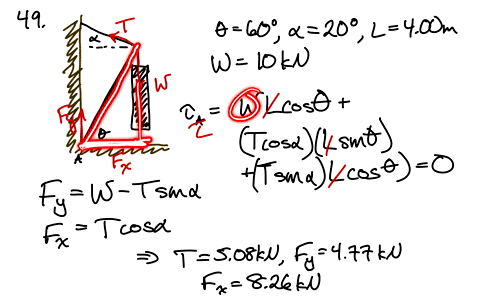 49.
T
α
W
Fy
θ
A
Fx
θ=60°, α=20°, L=4.00m
W=10kN
τA = WLcosθ +
Σ
(Tcosα)(Lsinθ)
+(Tsinα)Lcosθ)=0
Fy = W-Tsinα
Fx = Tcosα
⇒ T=5.08kN, Fy=4.77kN
Fx=8.26kN